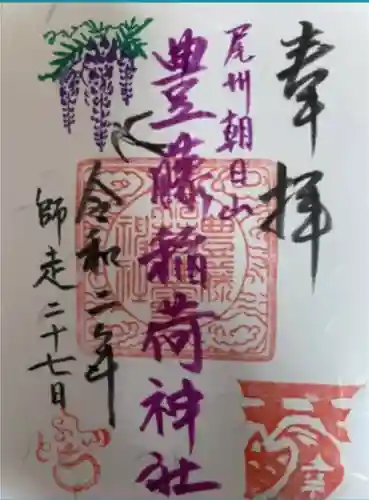 奉拝
尾州朝日山
豊藤稲荷神社
令和二年
師走二十七日